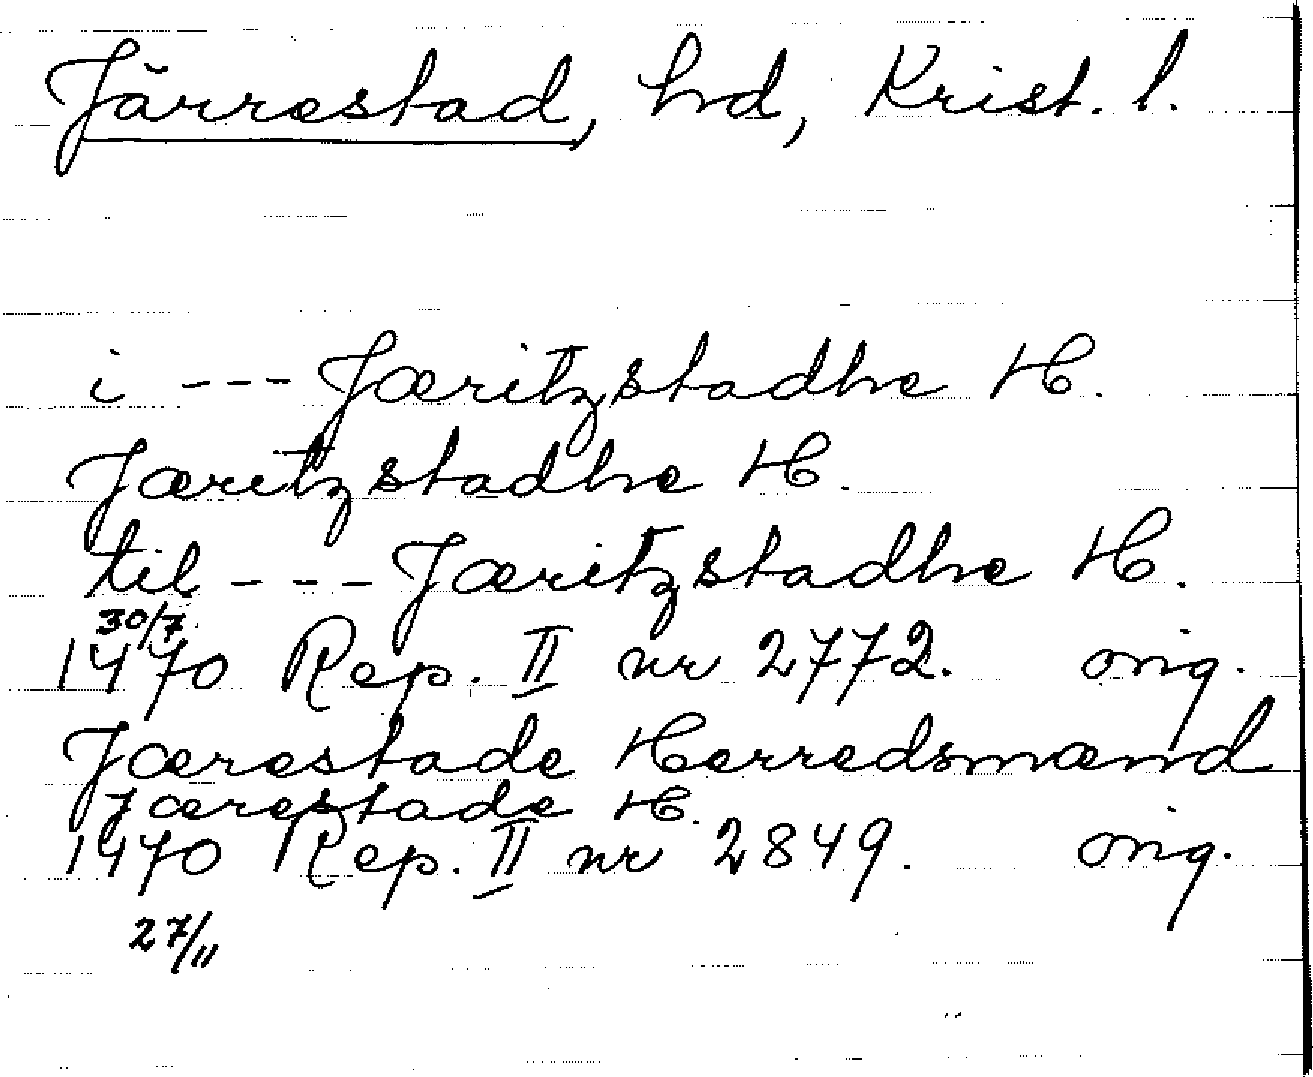 Järrestad, hd, Krist. l.
i --- Jæritzstadhe H.
Jæritzstadhe H.
til --- Jæritzstadhe H.
30/7
1470 Rep. II nr 2772. orig.
Jærestade Herredsmænd
Jærestade H.
1470 Rep. II nr 2849. orig.
27/11